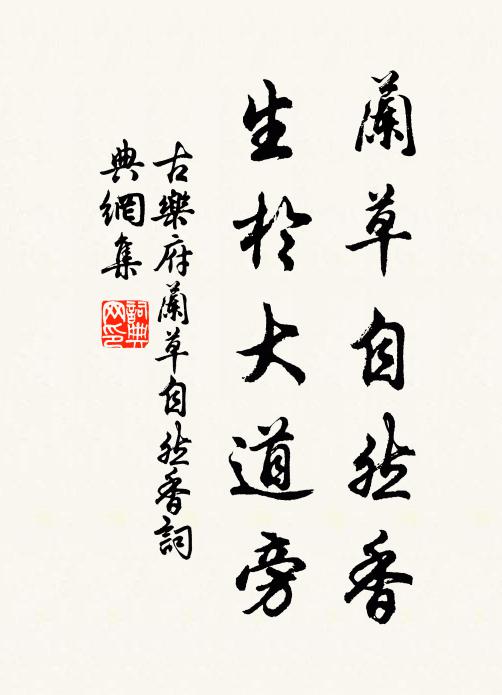 蘭草自然香
生於大道旁
古樂府蘭草自然香詞
典網集
詞典
网印